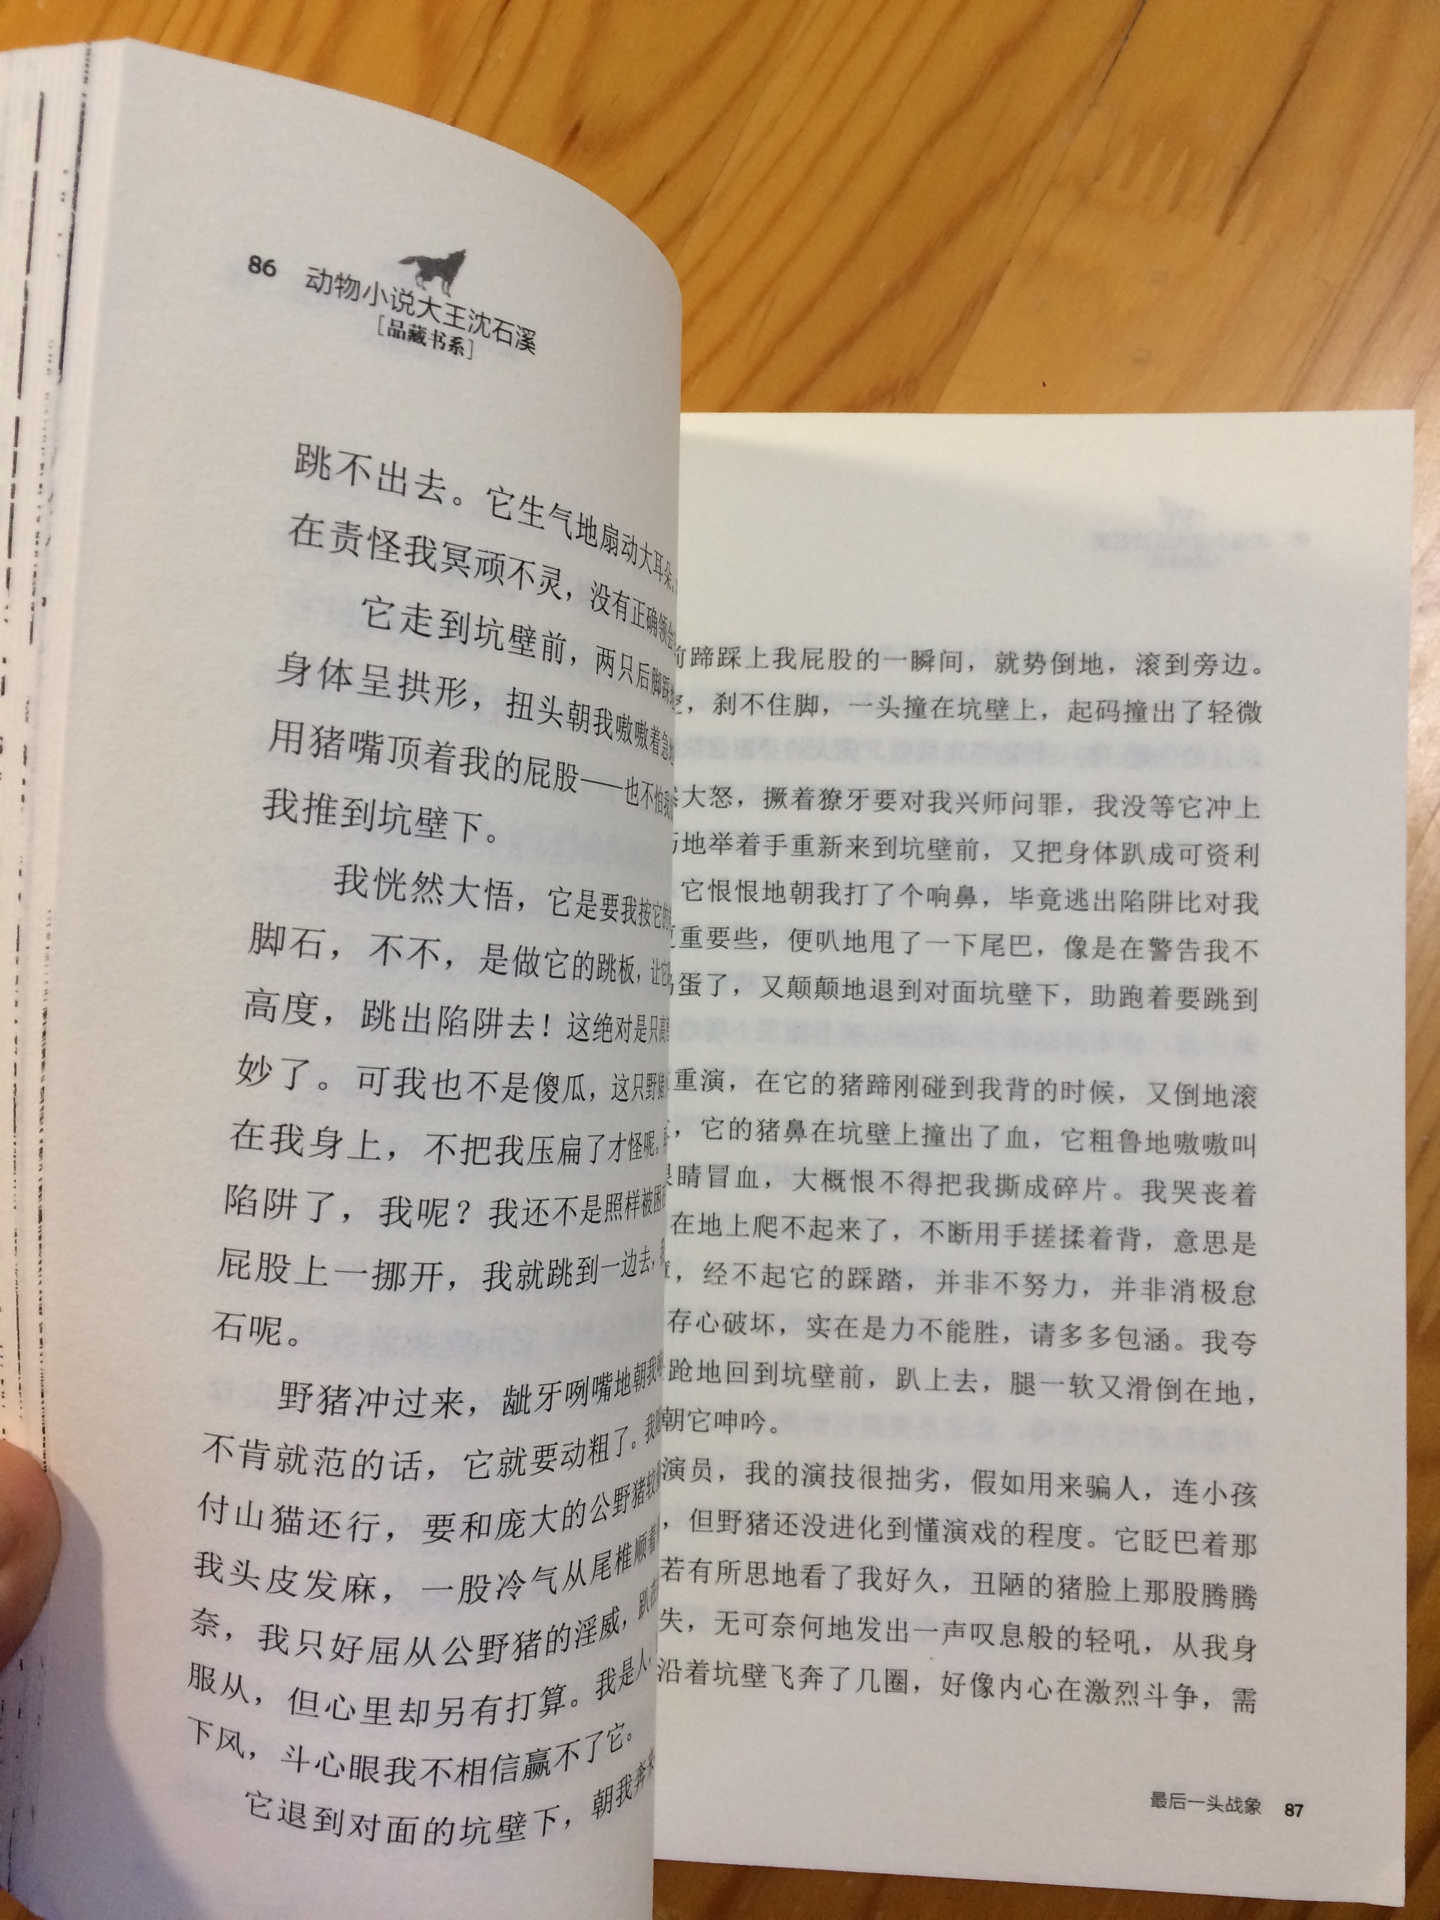 86
动物小说大王沈石溪
[品藏书系]
跳不出去。它生气地扇动大耳朵,
在责怪我冥顽不灵，没有正确领会
它走到坑壁前，两只后脚踩
身体呈拱形，扭头朝我嗷嗷着急地
用猪嘴顶着我的屁股——也不怕我
我推到坑壁下。
我恍然大悟，它是要我按它的
脚石，不不，是做它的跳板，让它
高度，跳出陷阱去！这绝对是只高
妙了。可我也不是傻瓜，这只野猪
在我身上，不把我压扁了才怪呢。再
陷阱了，我呢？我还不是照样被困
屁股上一挪开，我就跳到一边去，
石呢。
野猪冲过来，龇牙咧嘴地朝我
不肯就范的话，它就要动粗了。我
付山猫还行，要和庞大的公野猪较
我头皮发麻，一股冷气从尾椎顺着
奈，我只好屈从公野猪的淫威，趴
服从，但心里却另有打算。我是人，
下风，斗心眼我不相信赢不了它。
它退到对面的坑壁下，朝我奔来
前蹄踩上我屁股的一瞬间，就势倒地，滚到旁边。
，刹不住脚，一头撞在坑壁上，起码撞出了轻微
大怒，撅着獠牙要对我兴师问罪，我没等它冲上
地举着手重新来到坑壁前，又把身体趴成可资利
它恨恨地朝我打了个响鼻，毕竟逃出陷阱比对我
重要些，便叭地甩了一下尾巴，像是在警告我不
蛋了，又颠颠地退到对面坑壁下，助跑着要跳到
重演，在它的猪蹄刚碰到我背的时候，又倒地滚
，它的猪鼻在坑壁上撞出了血，它粗鲁地嗷嗷叫
眼睛冒血，大概恨不得把我撕成碎片。我哭丧着
在地上爬不起来了，不断用手搓揉着背，意思是
，经不起它的踩踏，并非不努力，并非消极怠
存心破坏，实在是力不能胜，请多多包涵。我夸
跄地回到坑壁前，趴上去，腿一软又滑倒在地，
朝它呻吟。
演员，我的演技很拙劣，假如用来骗人，连小孩
，但野猪还没进化到懂演戏的程度。它眨巴着那
若有所思地看了我好久，丑陋的猪脸上那股腾腾
失，无可奈何地发出一声叹息般的轻吼，从我身
沿着坑壁飞奔了几圈，好像内心在激烈斗争，需
最后一头战象 87